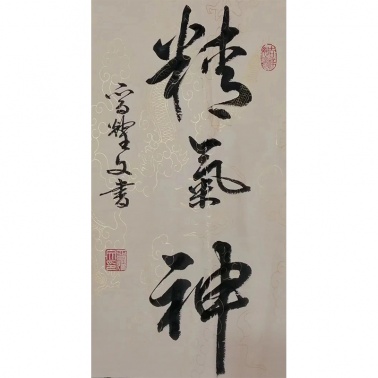 精氣神
文書